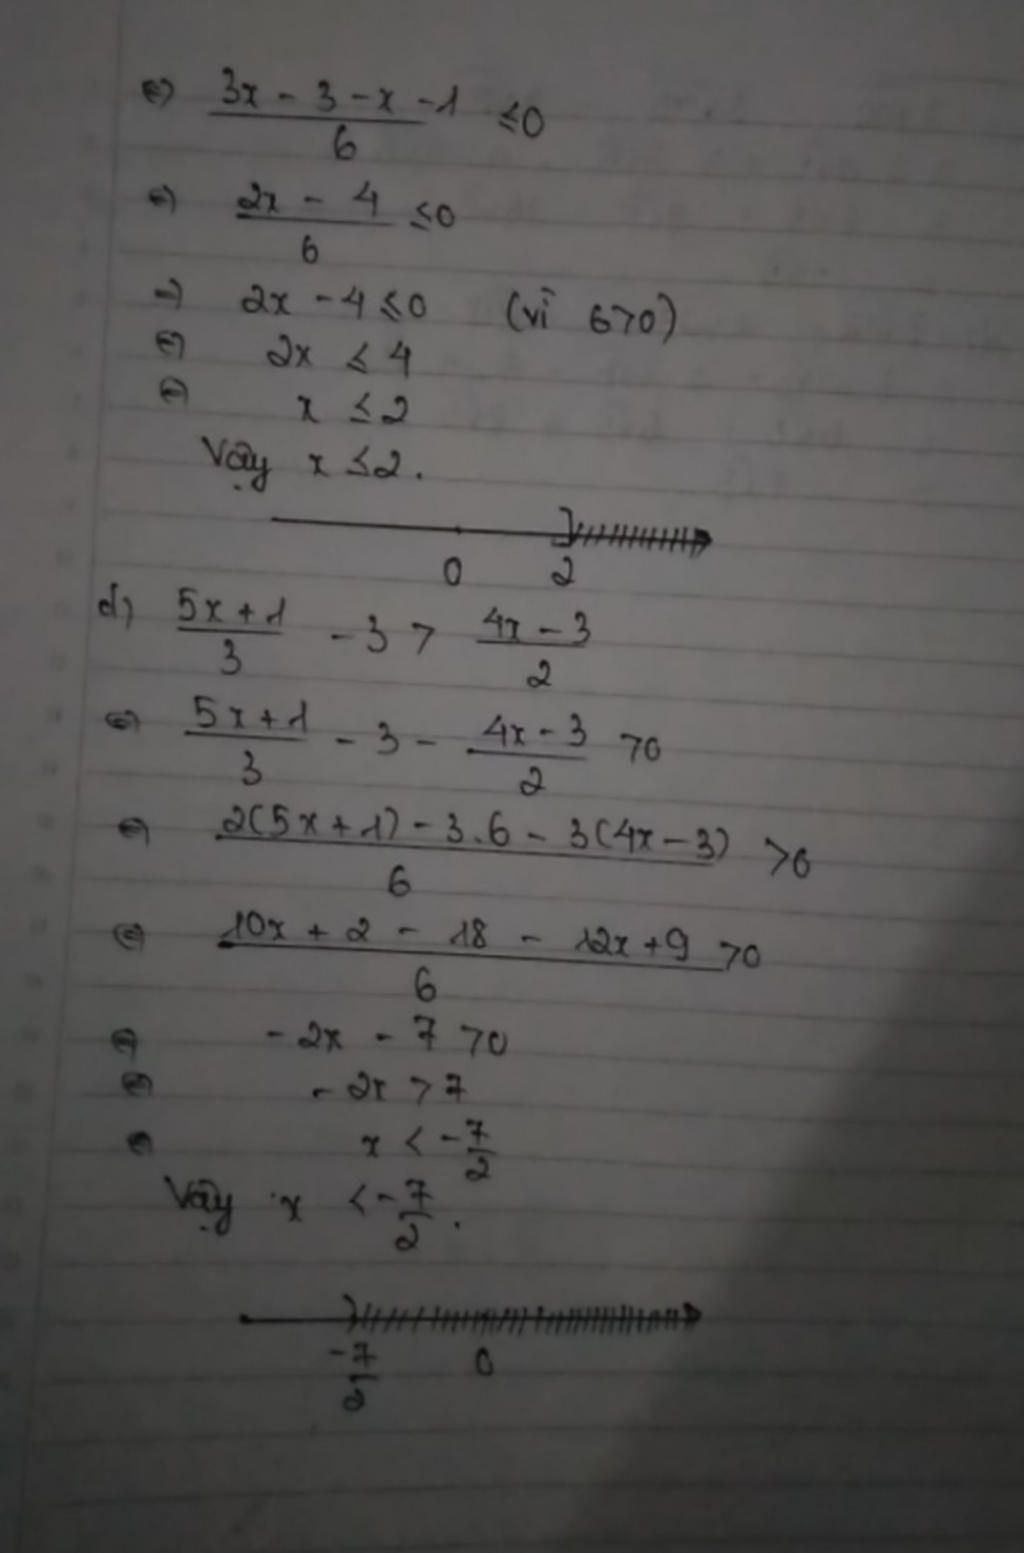 ⇔ (3x - 3 - x - 1)/6 ≤0
⇔ (2x - 4)/6 ≤0
⇒ 2x - 4 ≤ 0 (vì 6>0)
⇔ 2x ≤ 4
⇔ x ≤ 2
Vậy x ≤ 2.
0 2
d) (5x + 1)/3 - 3 > (4x - 3)/2
⇔ (5x + 1)/3 - 3 - (4x - 3)/2 >0
⇔ (2(5x + 1) - 3.6 - 3(4x - 3))/6 >0
⇔ (10x + 2 - 18 - 12x + 9)/6 >0
⇔ -2x - 7 >0
⇔ -2x > 7
⇔ x < -7/2
Vậy x < -7/2.
-7/2 0